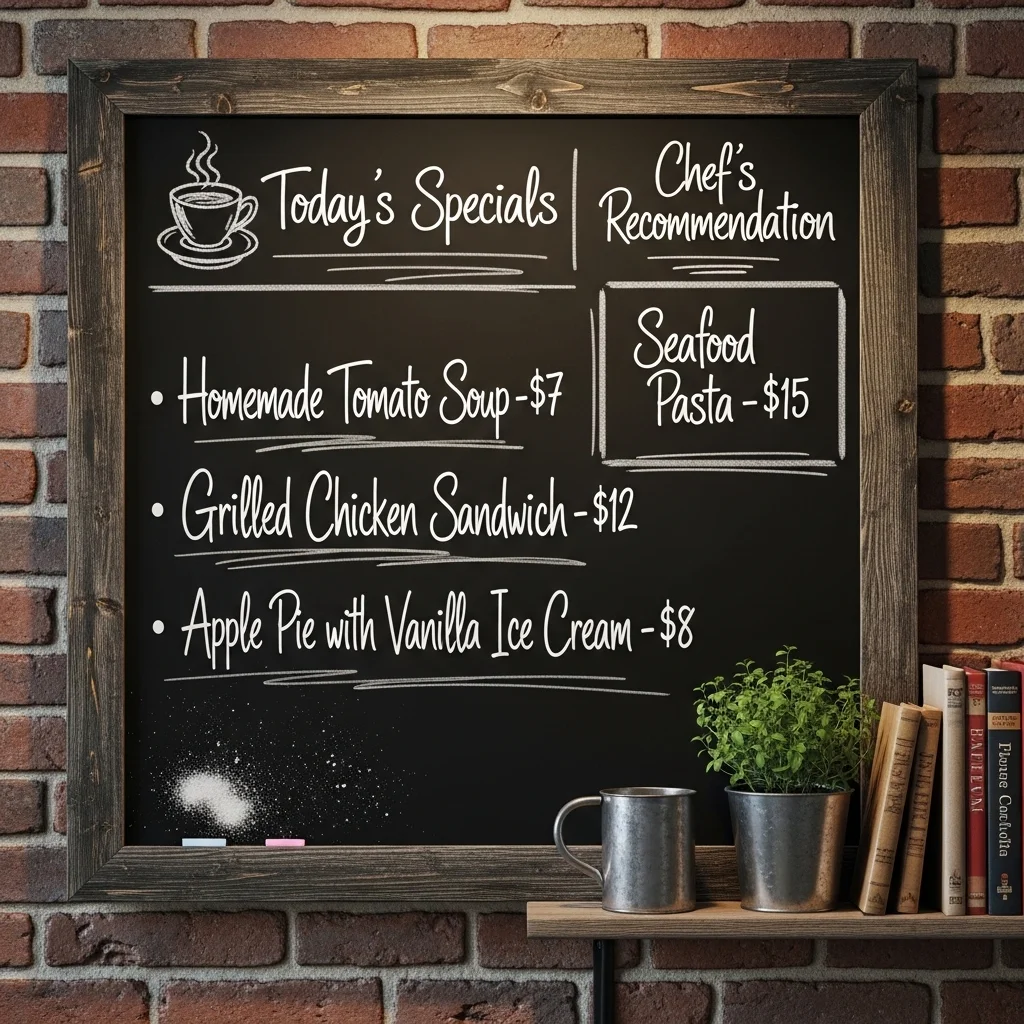 Today's Specials
Chef's
Recommendation
• Homemade Tomato Soup - $7
• Grilled Chicken Sandwich - $12
• Apple Pie with Vanilla Ice Cream - $8
Seafood
Pasta - $15